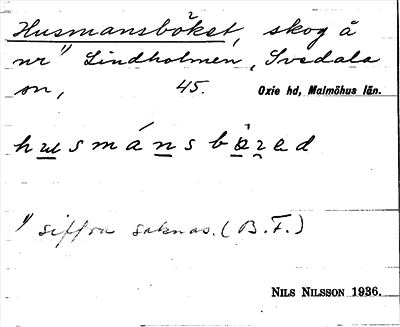 Husmansböket, skog å
nr ¹⁾ Lindholmen, Svedala
sn, 45. Oxie hd, Malmöhus län.
husmánsbøɀed
¹⁾ siffra saknas. (B.F.)
NILS NILSSON 1936.